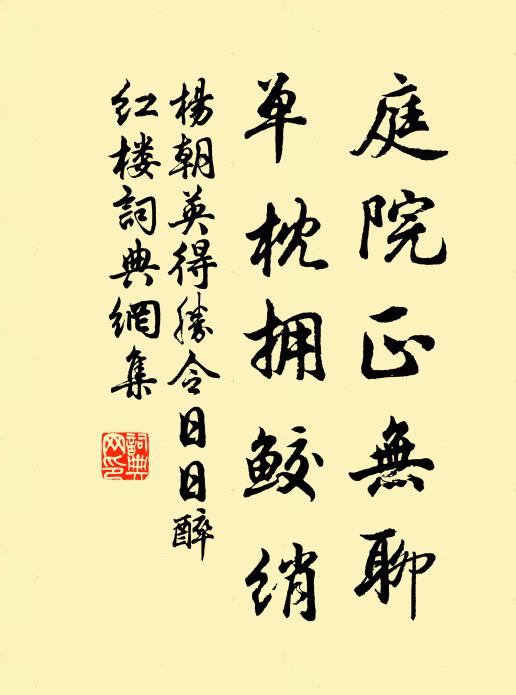 庭院正無聊
单枕拥鮫绡
楊朝英得勝令日日醉
红楼詞典網集
詞典网印